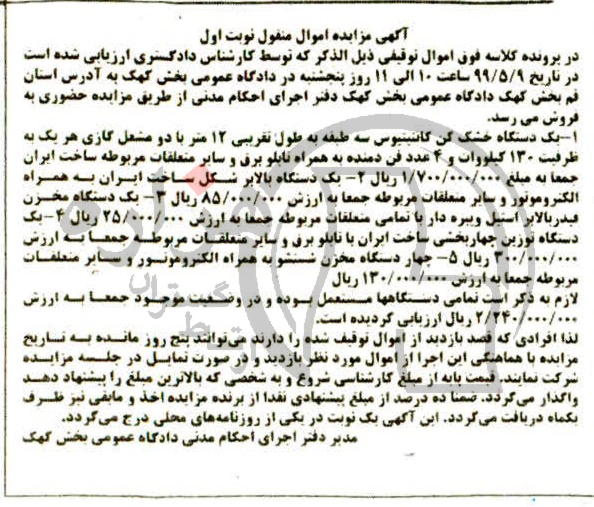 آگهی مزایده اموال منقول نوبت اول
در پرونده کلاسه فوق اموال توقیفی ذیل الذکر که توسط کارشناس دادگستری ارزیابی شده است
در تاریخ ۹۹/۵/۹ ساعت ۱۰ الی ۱۱ روز پنجشنبه در دادگاه عمومی بخش کهک به آدرس استان
قم بخش کهک دادگاه عمومی بخش کهک دفتر اجرای احکام مدنی از طریق مزایده حضوری به
فروش می رسد.
۱-یک دستگاه خشک کن کانتینیوس سه طبقه به طول تقریبی ۱۲ متر با دو مشعل گازی هر یک به
ظرفیت ۱۳۰ کیلووات و ۴ عدد فن دمنده به همراه تابلو برق و سایر متعلقات مربوطه ساخت ایران
جمعا به مبلغ ۱/۷۰۰/۰۰۰/۰۰۰ ریال ۲- یک دستگاه بالابر شکل ساخت ایران به همراه
الکتروموتور و سایر متعلقات مربوطه جمعا به ارزش ۸۵/۰۰۰/۰۰۰ ریال ۳- یک دستگاه مخزن
فیدربالابر استیل ویبره دار با تمامی متعلقات مربوطه جمعا به ارزش ۲۵/۰۰۰/۰۰۰ ریال ۴-یک
دستگاه توزین چهاربخشی ساخت ایران با تابلو برق و سایر متعلقات مربوطه جمعا به ارزش
۳۰۰/۰۰۰/۰۰۰ ریال ۵- چهار دستگاه مخزن شستشو به همراه الکتروموتور و سایر متعلقات
مربوطه جمعا به ارزش ۱۳۰/۰۰۰/۰۰۰ ریال
لازم به ذکر است تمامی دستگاهها مستعمل بوده و در وضعیت موجود جمعا به ارزش
۲/۲۴۰/۰۰۰/۰۰۰ ریال ارزیابی گردیده است.
لذا افرادی که قصد بازدید از اموال توقیف شده را دارند می‌توانند پنج روز مانده به تاریخ
مزایده با هماهنگی این اجرا از اموال مورد نظر بازدید و در صورت تمایل در جلسه مزایده
شرکت نمایند. قیمت پایه از مبلغ کارشناسی شروع و به شخصی که بالاترین مبلغ را پیشنهاد دهد
واگذار می‌گردد. ضمنا ده درصد از مبلغ پیشنهادی نقدا از برنده مزایده اخذ و مابقی نیز ظرف
یکماه دریافت می‌گردد. این آگهی یک نوبت در یکی از روزنامه‌های محلی درج می‌گردد.
مدیر دفتر اجرای احکام مدنی دادگاه عمومی بخش کهک